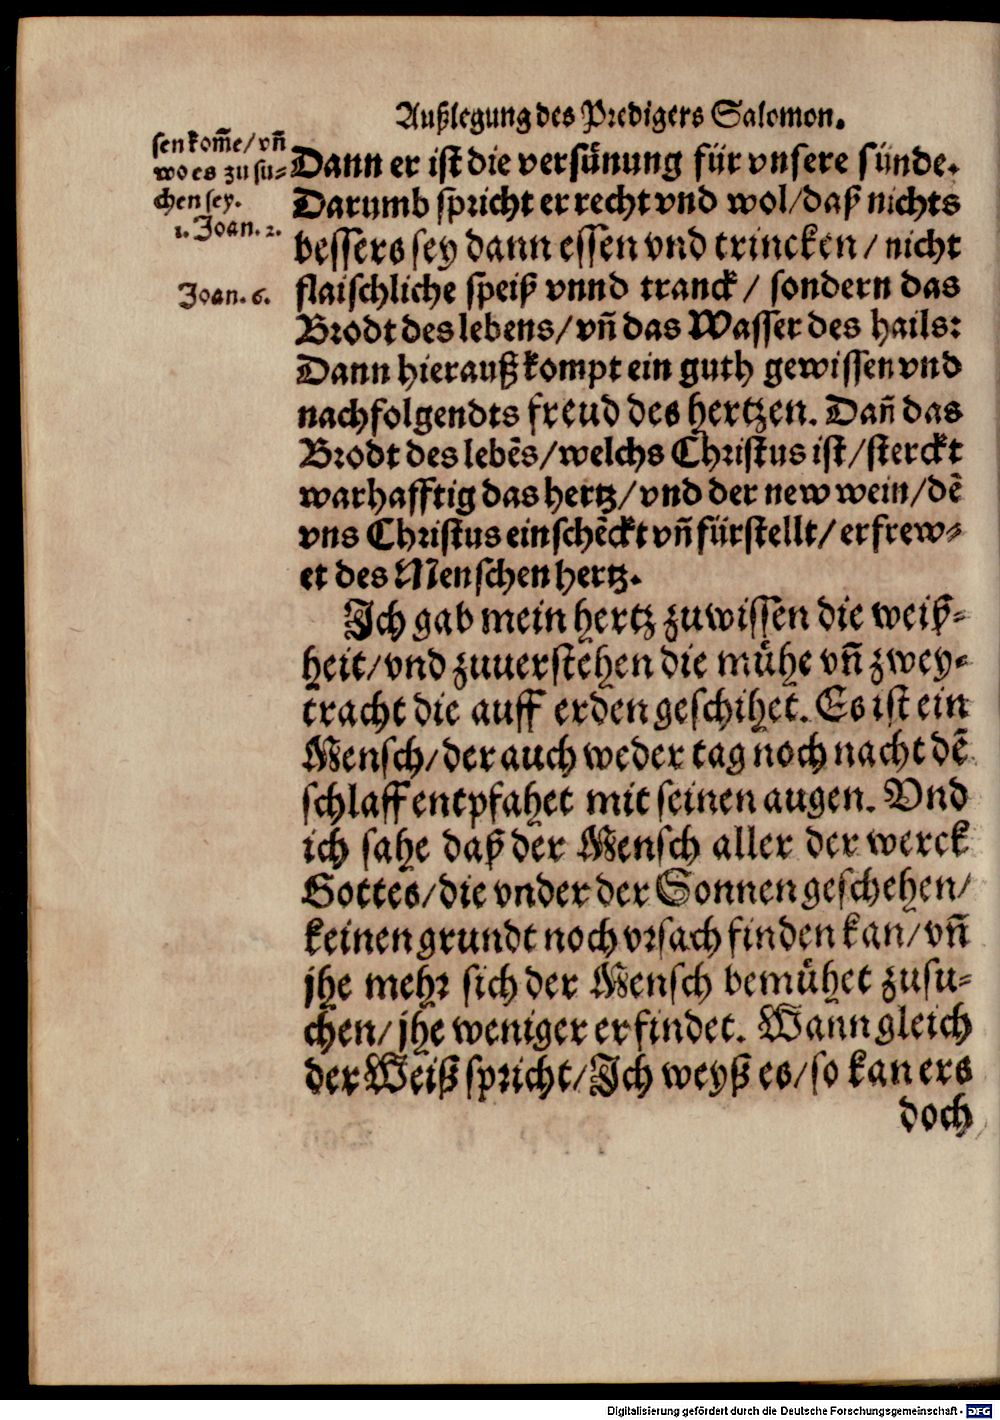 Außlegung des Predigers Salomon.
sen kom̃e/ vñ
wo es zu su-
chen sey.
1. Joan. 2.
Joan. 6.
Dann er ist die versünung für vnsere sünde.
Darumb spricht er recht vnd wol/ daß nichts
bessers sey dann essen vnd trincken/ nicht
flaischliche speiß vnnd tranck/ sondern das
Brodt des lebens/ vñ das Wasser des hails:
Dann hierauß kompt ein guth gewissen vnd
nachfolgendts freud des hertzen. Dañ das
Brodt des lebẽs/ welchs Christus ist/ sterckt
warhafftig das hertz/ vnd der new wein/ dẽ
vns Christus einschẽckt vñ fürstellt/ erfrew-
et des Menschen hertz.
Ich gab mein hertz zuwissen die weiß-
heit/ vnd zuuerstehen die mühe vñ zwey-
tracht die auff erden geschihet. Es ist ein
Mensch/ der auch weder tag noch nacht dẽ
schlaff entpfahet mit seinen augen. Vnd
ich sahe daß der Mensch aller der werck
Gottes/ die vnder der Sonnen geschehen/
keinen grundt noch vrsach finden kan/ vñ
jhe mehr sich der Mensch bemühet zusu-
chen/ jhe weniger er findet. Wann gleich
der Weiß spricht/ Ich weyß es/ so kan ers
doch
Digitalisierung gefördert durch die Deutsche Forschungsgemeinschaft - DFG